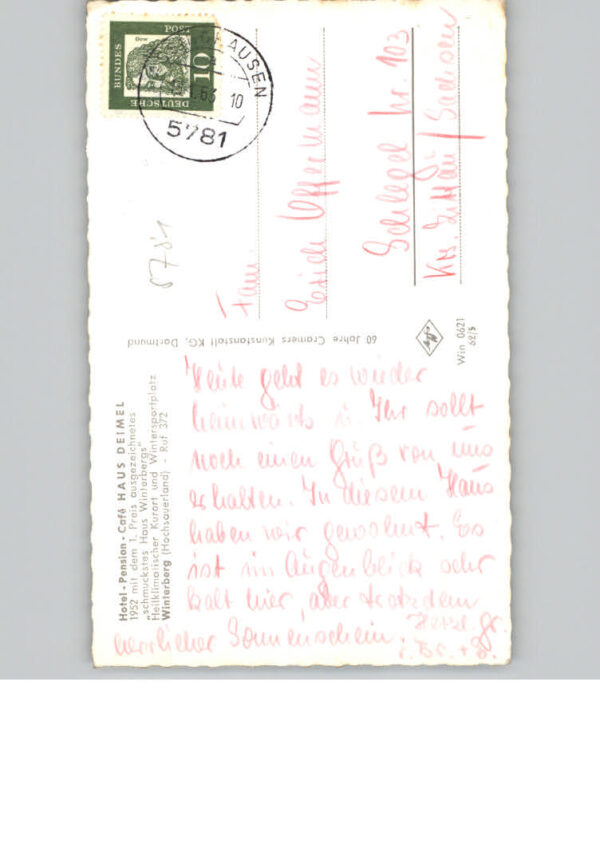 Hotel - Pension - Café HAUS DEIMEL
1952 mit dem 1. Preis ausgezeichnetes
„schmuckstes Haus Winterbergs"
Heilklimatischer Kurort und Wintersportplatz
Winterberg (Hochsauerland) - Ruf 372
Heute geht es wieder
heimwärts u. Ihr sollt
noch einen Gruß von uns
erhalten. In diesem Haus
haben wir gewohnt. Es
ist im Augenblick sehr
kalt hier, aber trotzdem
herrlicher Sonnenschein. Herzl. Gr.
60 Jahre Cramers Kunstanstalt KG, Dortmund
DEUTSCHE
BUNDES
POST
10
HAUSEN
63 10
5781
5781
Fam.
Erich Offermann
Schlegel Nr. 103
Krs. Zittau / Sachsen
Win 0621